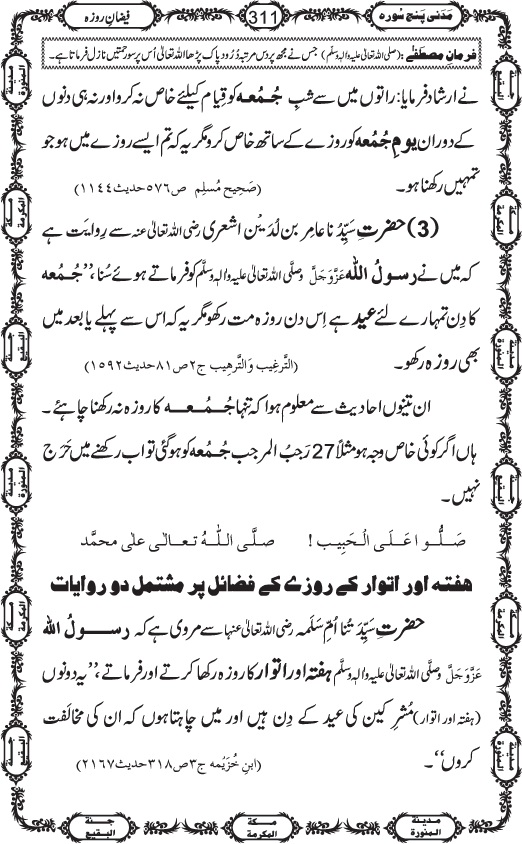 مَدَنی پَنج سُورہ 311 فیضانِ روزہ
فرمانِ مصطفٰے : (صلی اللہ تعالیٰ علیہ والہٖ وسلّم) جس نے مجھ پر دس مرتبہ دُرُود پاک پڑھا اللہ تعالیٰ اُس پر سو رحمتیں نازل فرماتا ہے۔
نے ارشاد فرمایا: راتوں میں سے شبِ جُمُعہ کو قِیام کیلئے خاص نہ کرو اور نہ ہی دنوں
کے دوران یومِ جُمُعہ کو روزے کے ساتھ خاص کرو مگر یہ کہ تم ایسے روزے میں ہو جو
تمہیں رکھنا ہو۔ (صَحِیح مُسلِم ص۵۷۶ حدیث۱۱۴۴)
(3) حضرتِ سَیِّدُنا عامِر بن لُدَیْن اشعری رضی اللہ تعالیٰ عنہ سے رِوایَت ہے
کہ میں نے رسولُ اللہ عَزَّوَجَلَّ وصلَّی اللہ تعالیٰ علیہ والہٖ وسلَّم کو فرماتے ہوئے سُنا، ”جُمُعہ
کا دِن تمہارے لئے عید ہے اِس دن روزہ مت رکھو مگر یہ کہ اس سے پہلے یا بعد میں
بھی روزہ رکھو۔ (الترغِیب وَالترھِیب ج۲ص۸۱ حدیث۱۵۹۲)
ان تینوں احادیث سے معلوم ہوا کہ تنہا جُمُعہ کا روزہ نہ رکھنا چاہئے۔
ہاں اگر کوئی خاص وجہ ہو مثلاً 27 رَجبُ المرجب جُمُعہ کو ہو گئی تو اب رکھنے میں حَرَج
نہیں۔
صَلُّوا عَلَی الْحَبِیب ! صلَّی اللّٰہُ تعالٰی علٰی محمَّد
ہفتہ اور اتوار کے روزے کے فضائل پر مشتمل دو روایات
حضرتِ سَیِّدَتُنا اُمِّ سَلَمہ رضی اللہ تعالیٰ عنہا سے مروی ہے کہ رسولُ اللہ
عَزَّوَجَلَّ وصلَّی اللہ تعالیٰ علیہ والہٖ وسلَّم ہفتہ اور اتوار کا روزہ رکھا کرتے اور فرماتے، ”یہ دونوں
(ہفتہ اور اتوار) مُشرِکین کی عید کے دِن ہیں اور میں چاہتا ہوں کہ ان کی مخالَفت
کروں“۔ (ابنِ خُزَیمہ ج۳ص۳۱۸ حدیث۲۱۶۷)
مدینۃ المنورۃ
مکۃ المکرمۃ
جنۃ البقیع